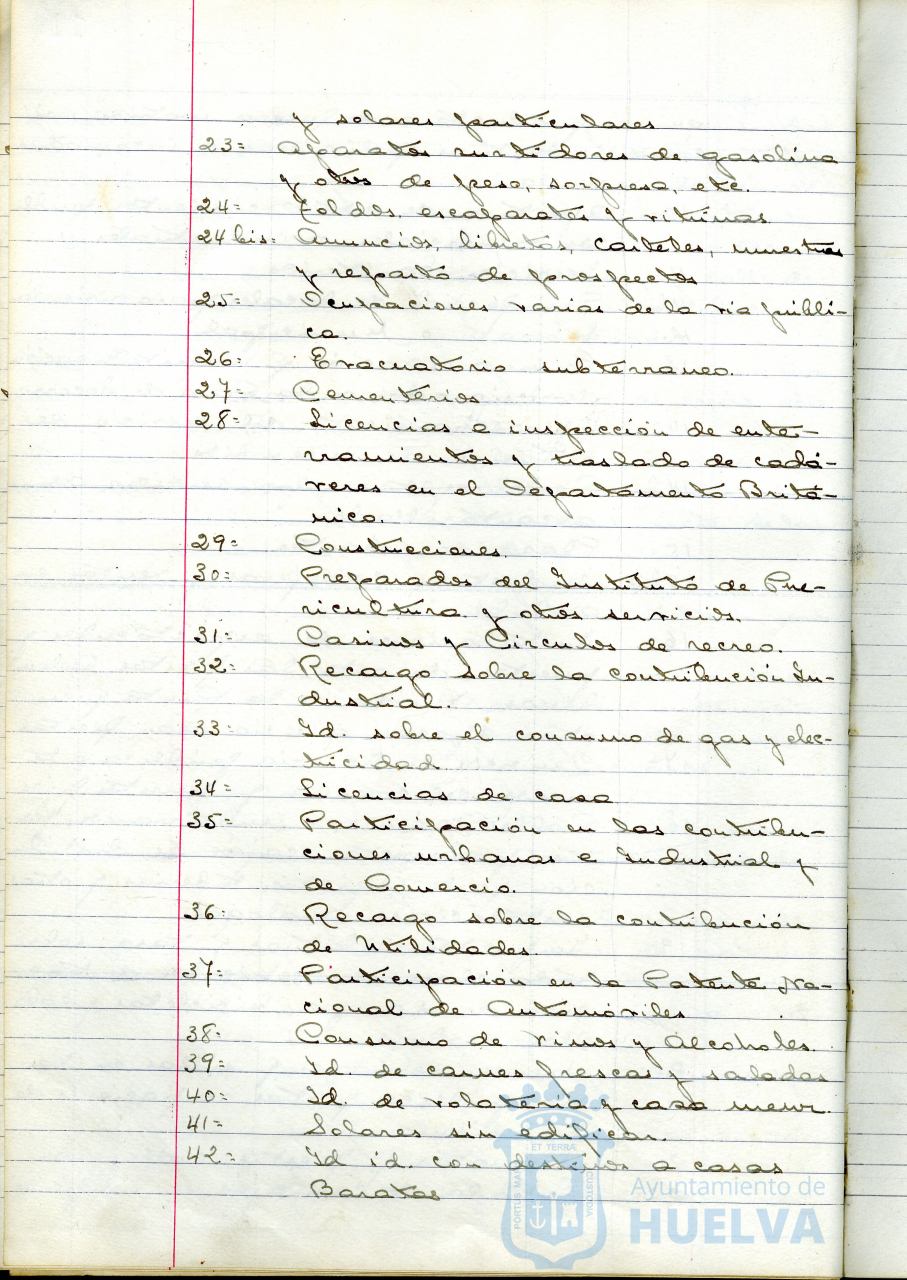 y solares particulares
23= Aparatos surtidores de gasolina
y otros de peso, sorpresa, etc.
24= Toldos, escaparates y vitrinas.
24 bis= Anuncios, libretos, carteles, muestras
y reparto de prospectos
25= Ocupaciones varias de la via públi-
ca.
26= Evacuatorio subterraneo.
27= Cementerios
28= Licencias e inspección de ente-
rramientos y traslado de cadá-
veres en el Departamento Britá-
nico.
29= Construcciones.
30= Preparados del Instituto de Pue-
ricultura y otros servicios.
31= Casinos y Circulos de recreo.
32= Recargo sobre la contribución In-
dustrial.
33= Id. sobre el consumo de gas y elec-
tricidad
34= Licencias de casa
35= Participación en las contribu-
ciones urbanas e Industrial y
de Comercio.
36= Recargo sobre la contribución
de Utilidades.
37= Participación en la Patente Na-
cional de Automóviles
38= Consumo de vinos y Alcoholes.
39= Id. de carnes frescas y saladas
40= Id. de volateria y casa menor.
41= Solares sin edificar.
42= Id id. con destinos a casas
Baratas
ET TERRA
PORTUS MARIS
CUSTODIA
Ayuntamiento de
HUELVA